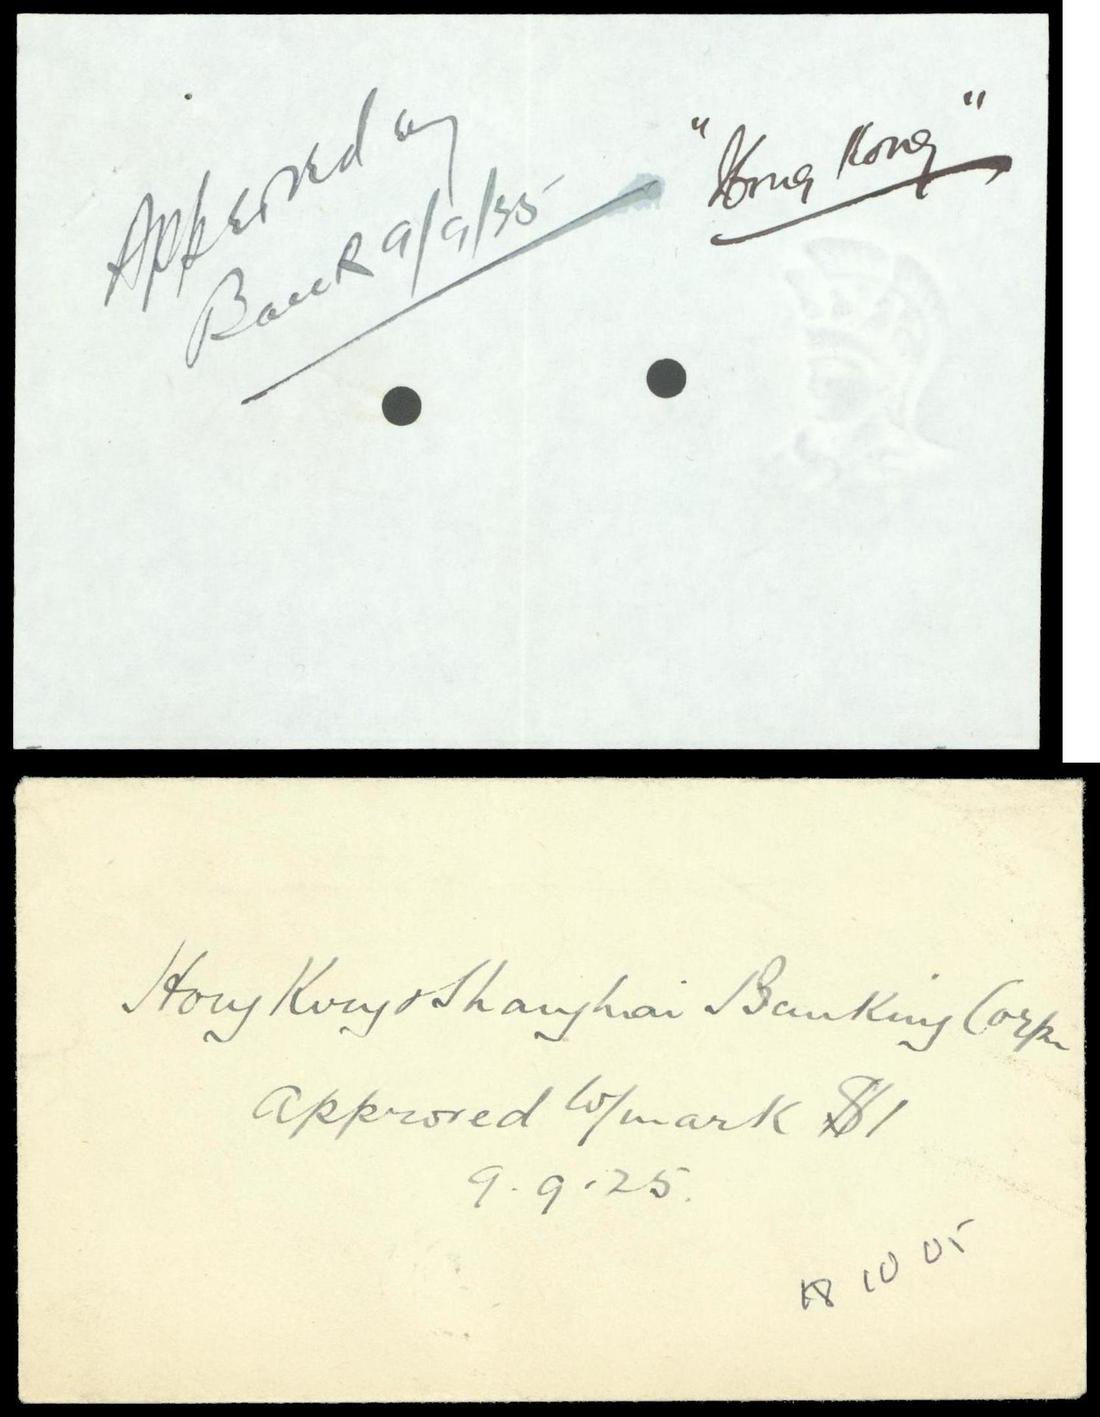 Approved by
Bank 9/9/35
"Hong Kong"
Hong Kong & Shanghai Banking Corpn
Approved W/mark $1
9.9.25.
18 10 05